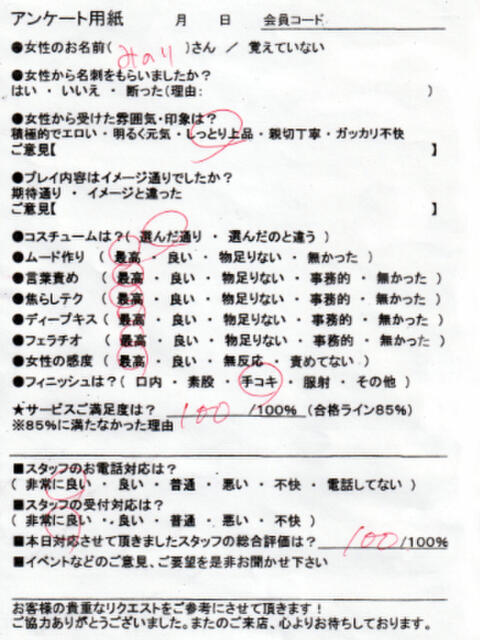 アンケート用紙　　　月　　日　　会員コード
●女性のお名前(みのり)さん ／ 覚えていない
●女性から名刺をもらいましたか？
はい ・ いいえ ・ 断った(理由:　　　　　　　　)
●女性から受けた雰囲気・印象は？
積極的でエロい・明るく元気・しっとり上品・親切丁寧・ガッカリ不快
ご意見【　　　　　　　　】
●プレイ内容はイメージ通りでしたか？
期待通り ・ イメージと違った
ご意見【　　　　　　　　】
●コスチュームは？( 選んだ通り ・ 選んだのと違う )
●ムード作り ( 最高 ・ 良い ・ 物足りない ・ 無かった )
●言葉責め ( 最高 ・ 良い ・ 物足りない ・ 事務的 ・ 無かった )
●焦らしテク ( 最高 ・ 良い ・ 物足りない ・ 事務的 ・ 無かった )
●ディープキス ( 最高 ・ 良い ・ 物足りない ・ 事務的 ・ 無かった )
●フェラチオ ( 最高 ・ 良い ・ 物足りない ・ 事務的 ・ 無かった )
●女性の感度 ( 最高 ・ 良い ・ 無反応 ・ 責めてない )
●フィニッシュは？( 口内 ・ 素股 ・ 手コキ ・ 服射 ・ その他 )
★サービスご満足度は？ 100 /100% (合格ライン85%)
※85%に満たなかった理由
■スタッフのお電話対応は？
( 非常に良い ・ 良い ・ 普通 ・ 悪い ・ 不快 ・ 電話してない )
■スタッフの受付対応は？
( 非常に良い ・ 良い ・ 普通 ・ 悪い ・ 不快 )
■本日対応させて頂きましたスタッフの総合評価は？ 100/100%
■イベントなどのご意見、ご要望を是非お聞かせ下さい
お客様の貴重なリクエストをご参考にさせて頂きます！
ご協力ありがとうございました。またのご来店、心よりお待ちしております。